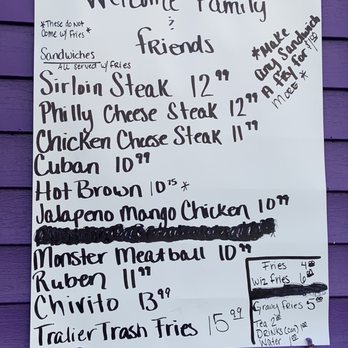 Welcome Family
&
friends
*These do not
Come w/ fries*
Sandwiches
All served w/ fries
*Make
Any Sandwich
A
for $1.50
more*
Sirloin Steak 12.99
Philly Cheese Steak 12.99
Chicken Cheese Steak 11.99
Cuban 10.99
Hot Brown 10.75 *
Jalapeno Mango Chicken 10.99
Monster Meatball 10.99
Ruben 11.99
Chivito 13.99
Tralier Trash Fries 15.99
Fries
Wiz fries
Gravy fries
Tea
DRINKS (can)
Water